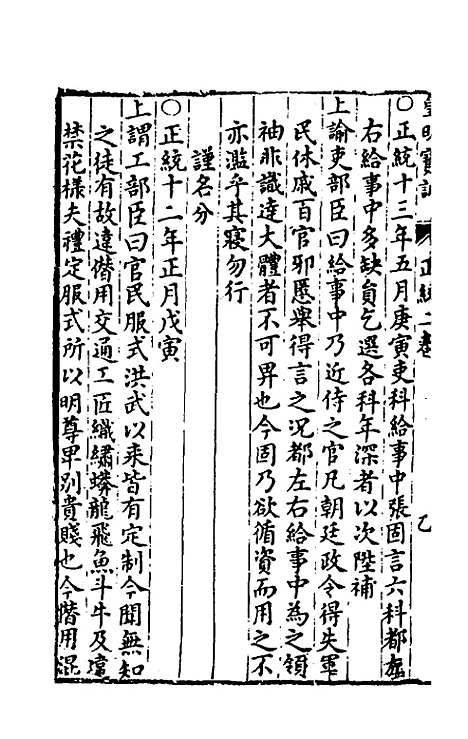 皇明寶訓 正統二卷 乙
〇正統十三年五月庚寅吏科給事中張固言六科都左
右給事中多缺員乞選各科年深者以次陞補
上諭吏部臣曰給事中乃近侍之官凡朝廷政令得失軍
民休戚百官邪慝舉得言之况都左右給事中為之領
袖非識達大體者不可畀也今固乃欲循資而用之不
亦濫乎其寢勿行
謹名分
〇正統十二年正月戊寅
上謂工部臣曰官民服式洪武以來皆有定制今聞無知
之徒有故違僭用交通工匠織繡蟒龍飛魚斗牛及違
禁花樣夫禮定服式所以明尊卑別貴賤也今僭用混